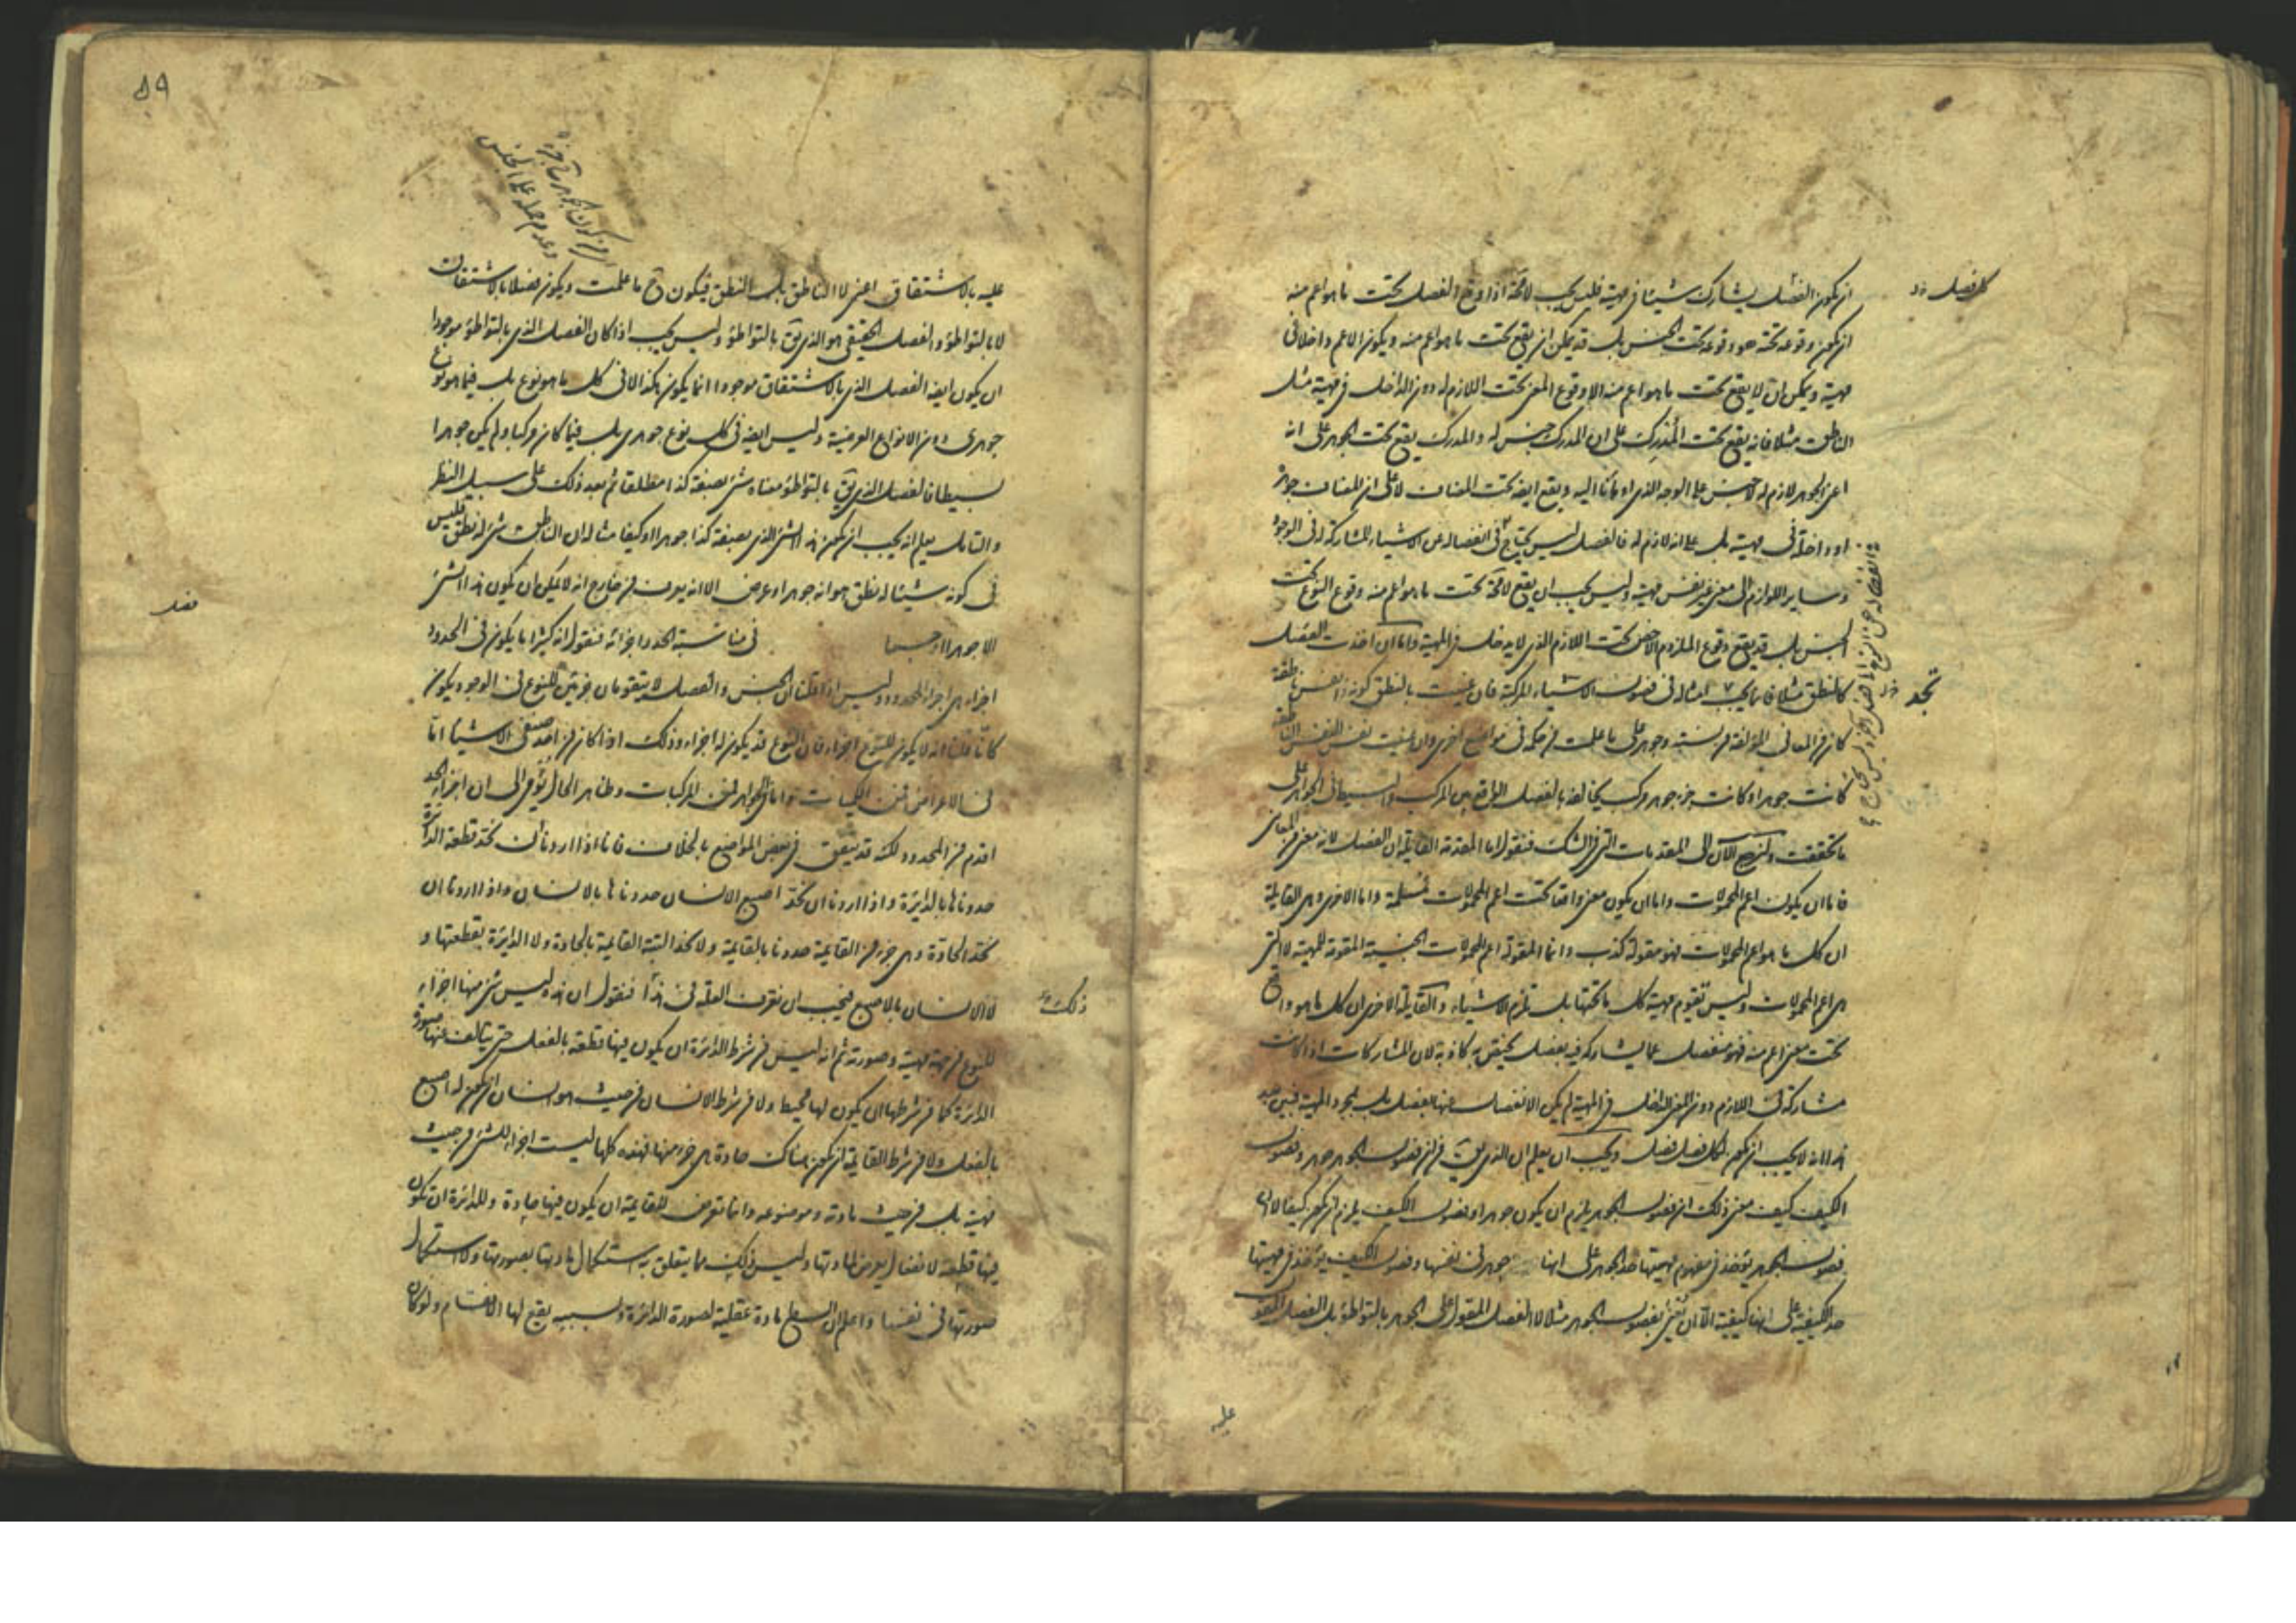 ان يكون الفصل يشارك شيئا في مهية فليس يجب لا محة اذا وقع الفصل تحت ما هو اعم منه
ان يكون وقوعه تحته هو وقوعه تحت الجنس بل قد يمكن ان يقع تحت ما هو اعم منه ويكون الاعم داخلا في
مهيته ويمكن ان لا يقع تحت ما هو اعم منه الا وقوع المعنى تحت اللازم له دون الداخل في مهيته مثل
الناطق مثلا فانه يقع تحت المدرك على ان المدرك جنس له والمدرك يقع تحت الجوهر على انه
اعني الجوهر لازم له لا جنس على الوجه الذي اومأنا اليه ويقع ايضه تحت المضاف لا على ان المضاف جوهره
او داخلة في مهيته بل على انه لازم له فالفصل ليس يحتاج في انفصاله عن الاشياء المشاركة له في الوجود
وساير اللوازم الى معنى غير نفس مهيته وليس يجب ان يقع لا محة تحت ما هو اعم منه وقوع النوع تحت
الجنس بل قد يقع وقوع الملزوم الاخص تحت اللازم الذي لا يدخل في المهية واما ان اخذت الفصل
كالنطق مثلا فانما يجب امثاله في فصول الاشياء المركبة فان عنيت بالنطق كونه ذا نفس ناطقة
كان من المعاني المؤلفة من نسبة وجوهر على ما علمت من حكمه في مواضع اخرى وان عنيت نفس النفس الناطقة
كانت جوهرا وكانت جزء جوهر مركب يخالفه بالفصل الواقع بين المركب والبسيط في الجواهر على
ما تحققت ولنرجع الآن الى المقدمات التي في الشك فنقول اما المقدمة القايلة ان الفصل لانه معنى من المعاني
فاما ان يكون اعم المحمولات واما ان يكون معنى واقعا تحت اعم المحمولات فمسلمة واما الاخرى وهي القايلة
ان كل ما هو اعم المحمولات فهو مقولة كذب وانما المقولة اعم المحمولات الجنسية المقومة للمهية لا التي
هي اعم المحمولات وليس تقوم مهية كل ما تحتها بل تلزم الاشياء والقايلة الاخرى ان كل ما هو واقع
تحت معنى اعم منه فهو منفصل عما يشاركه فيه بفصل يختص به كاذبة لان المشاركات اذا كانت
مشاركة في اللازم دون المعنى الداخل في المهية لم يكن الانفصال عنها بفصل بل بمجرد المهية فتبين بعد
هذا انه لا يجب ان يكون لكل فصل فصل ويجب ان يعلم ان الذي يق من ان فصول الجوهر جوهر وفصول
الكيف كيف معنى ذلك ان فصول الجوهر يلزم ان يكون جوهرا وفصول الكيف يلزم ان يكون كيفا لا ان
فصول الجوهر يؤخذ في مفهوم مهيتها حد الجوهر على انها جوهر في نفسها وفصول الكيف يؤخذ في مهيتها
حد الكيفية على انها كيفية الا ان نعني بفصول الجوهر مثلا لا الفصل المقول على الجوهر بالتواطؤ بل الفصل المقول
كل فصل
عليه
٥٩
عليه بالاشتقاق اعني لا الناطق بل النطق فيكون ح ما علمت ويكون فصلا بالاشتقاق
لا بالتواطؤ والفصل الحقيقي هو الذي يق بالتواطؤ وليس يجب اذا كان الفصل الذي بالتواطؤ موجودا
ان يكون ايضه الفصل الذي بالاشتقاق موجودا انما يكون هكذا لا في كل ما هو نوع بل فيما هو نوع
جوهري دون الانواع العرضية وليس ايضه في كل نوع جوهري بل فيما كان مركبا ولم يكن جوهرا
بسيطا فالفصل الذي يق بالتواطؤ معناه شئ بصفة كذا مطلقا ثم بعد ذلك على سبيل النظر
والتامل يعلم انه يجب ان يكون هذا الشئ الذي بصفة كذا جوهرا او كيفا مثاله ان الناطق شئ له نطق فليس
في كونه شيئا له نطق هو انه جوهر او عرض الا انه يعرف من خارج انه لا يمكن ان يكون هذا الشئ
الا جوهرا او جسما في مناسبة الحد واجزائه فنقول انه كثيرا ما يكون في الحدود
اجزاء هي اجزاء المحدود وليس اذا قلنا ان الجنس والفصل لا يتقومان جزئين للنوع في الوجود يكون
كانا قلنا انه لا يكون للنوع اجزاء فان النوع قد يكون له اجزاء وذلك اذا كان من احد صنفي الاشياء اما
في الاعراض فمن الكميات واما في الجواهر فمن المركبات وظاهر الحال يؤمي الى ان اجزاء الحد
اقدم من المحدود لكنه قد يتفق في بعض المواضع بالخلاف فانا اذا اردنا ان نحد قطعة الدائرة
حددناها بالدائرة واذا اردنا ان نحد اصبع الانسان حددناها بالانسان واذا اردنا ان
نحد الحادة وهي جزء من القايمة حددناها بالقايمة ولا نحد البتة القايمة بالحادة ولا الدائرة بقطعتها و
لا الانسان بالاصبع فيجب ان نعرف العلة في هذا فنقول ان هذه ليس شئ منها اجزاء
للنوع من جهة مهيته وصورته ثم انه ليس من شرط الدائرة ان يكون فيها قطعة بالفعل حتى يتالف عنها صورة
الدائرة كما من شرطها ان يكون لها محيط ولا من شرط الانسان من حيث هو انسان ان يكون له اصبع
بالفعل ولا من شرط القايمة ان يكون هناك حادة هي جزء منها فهذه كلها ليست اجزاء للشئ من حيث
مهيته بل من حيث مادته وموضوعه وانما تعرض للقايمة ان يكون فيها حادة وللدائرة ان تكون
فيها قطعة لانفعال يعرض لمادتها وليس ذلك مما يتعلق به استكمال مادتها بصورتها ولا استكمال
صورتها في نفسها واعلم ان السطح مادة عقلية لصورة الدائرة وبسببه يقع لها الانقسام ولو كان
ذلك